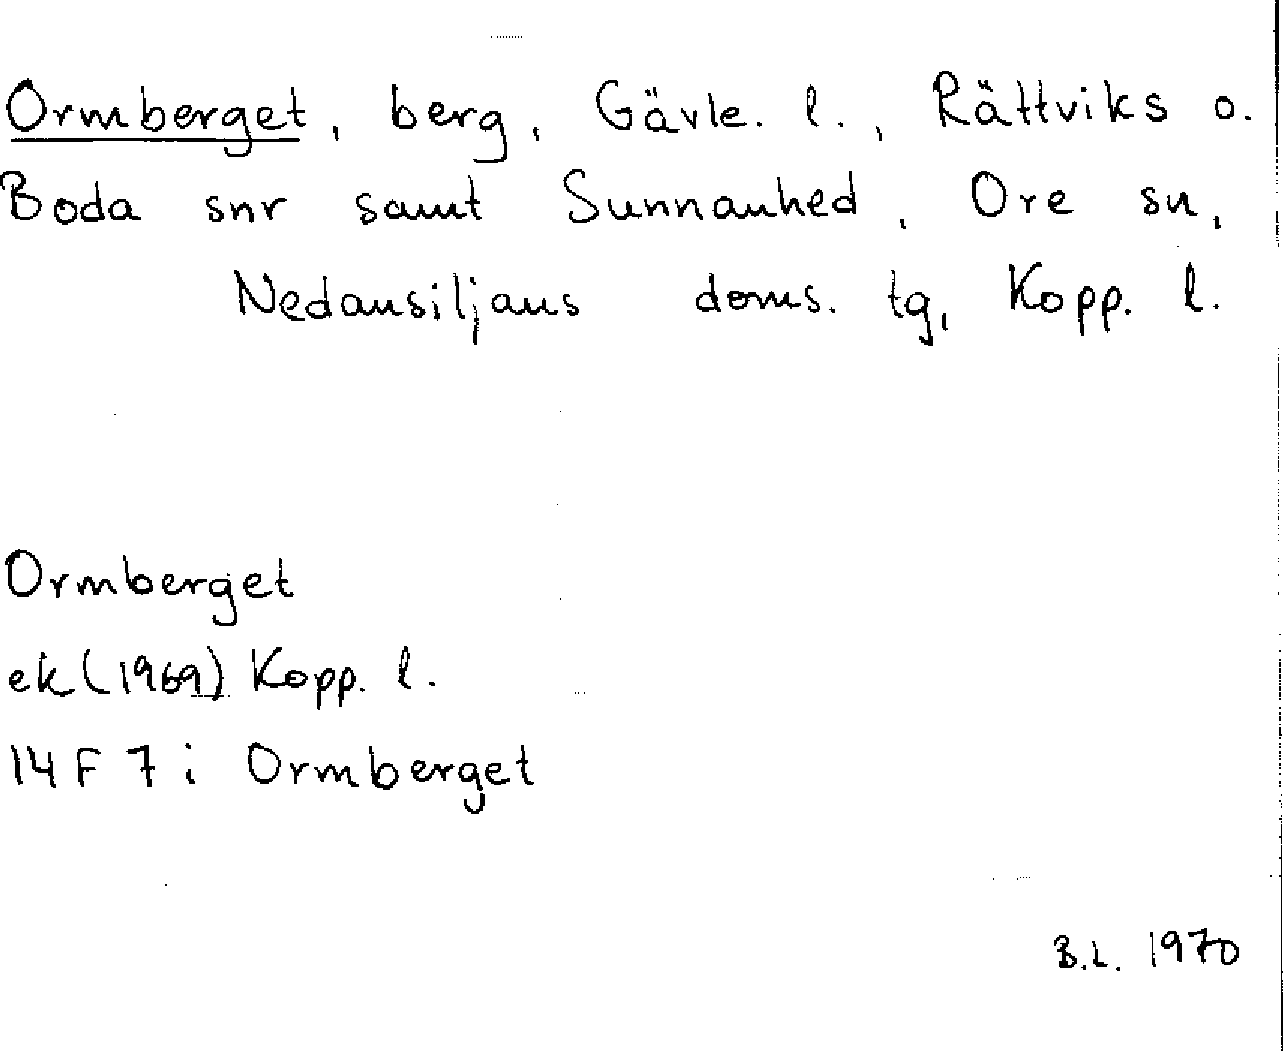 Ormberget, berg, Gävle. l., Rättviks o.
Boda snr samt Sunnanhed, Ore sn,
Nedansiljans doms. tg, Kopp. l.
Ormberget
ek (1969) Kopp. l.
14 F 7 i Ormberget
B.L. 1970